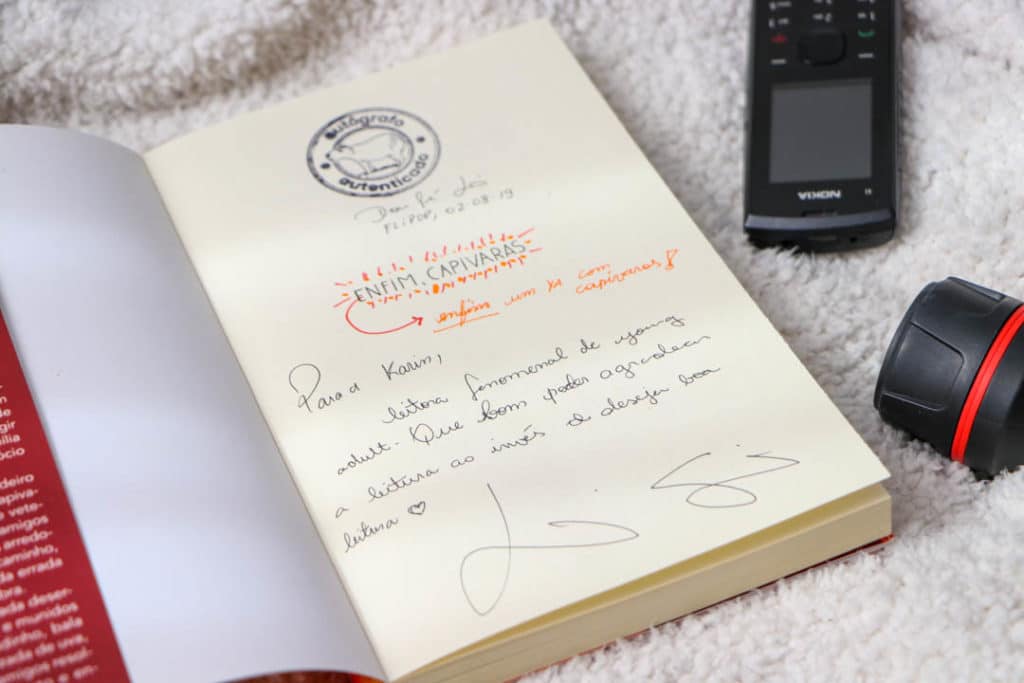 autógrafo
autenticado
Dou fé
FLIPOP, 02-08-19
ENFIM, CAPIVARAS
enfim um YA com
capivaras!
Para a Karin,
leitora fenomenal de young
adult. Que bom poder agradecer
a leitura ao invés de desejar boa
leitura ♡
NOKIA
gir
ília
ócio
deiro
apiva-
vete-
amigos
arredo-
caminho,
da errada
bra.
ada deser-
e munidos
dinho, bala
rada de uva,
amigos resol-